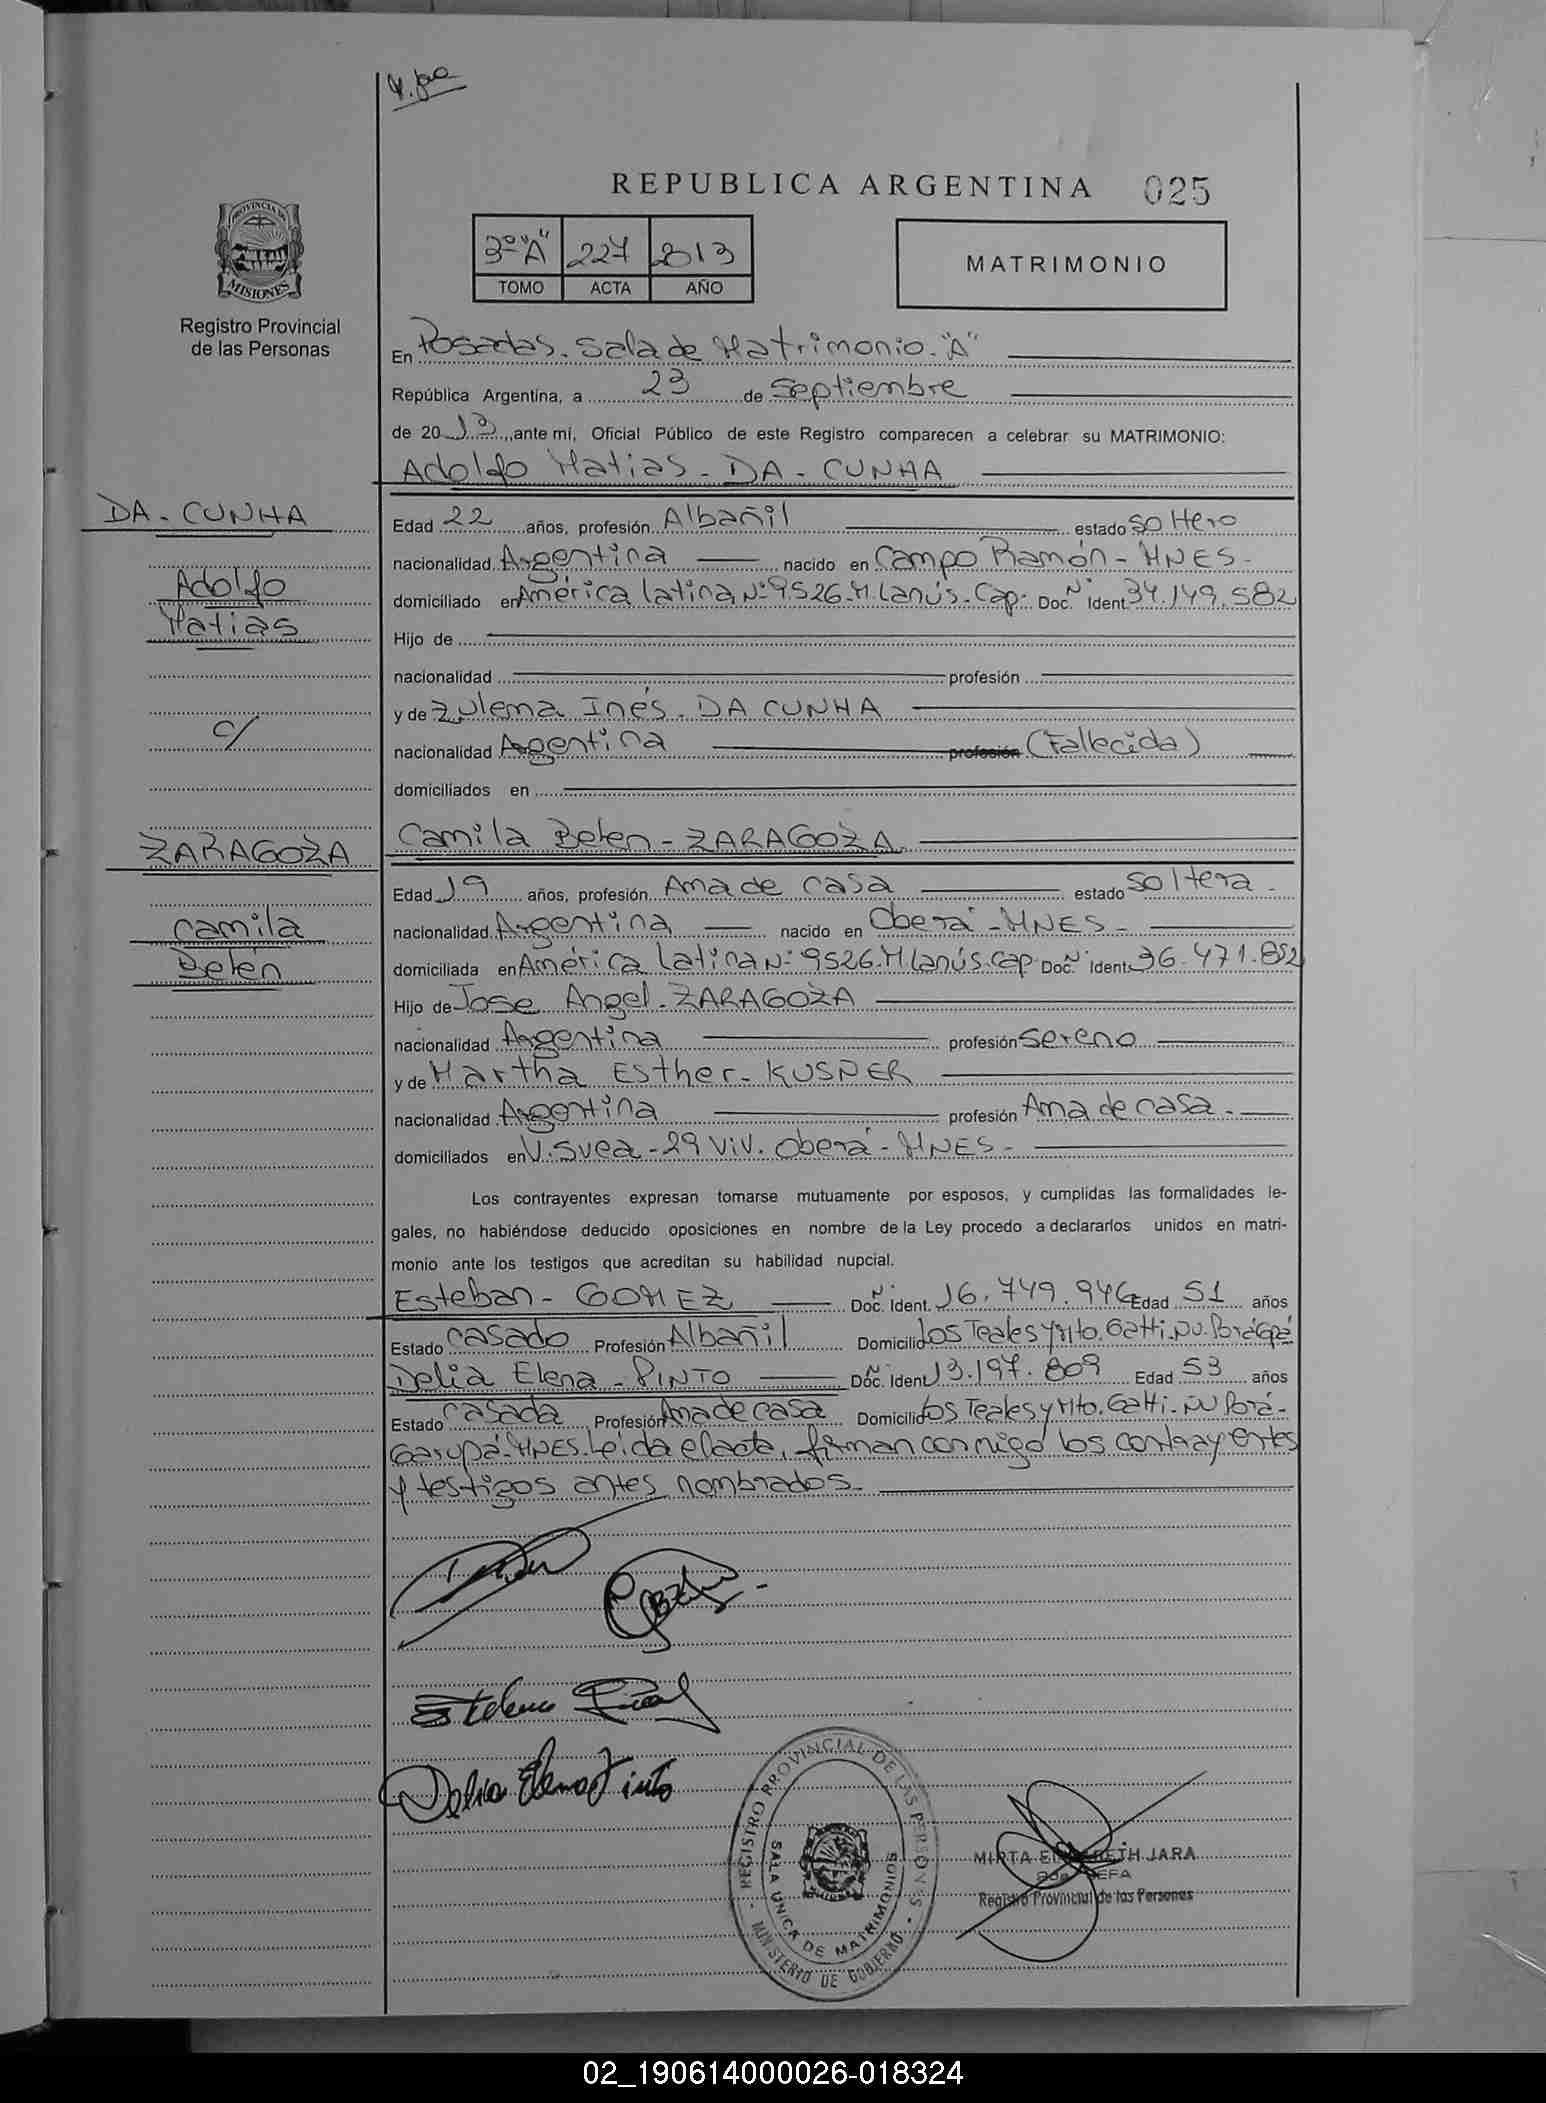 REPUBLICA ARGENTINA 025
PROVINCIA DE
MISIONES
Registro Provincial
de las Personas
3º "A" 227 2013
TOMO ACTA AÑO
MATRIMONIO
En Posadas. Sala de Matrimonio. "A"
República Argentina, a 23 de Septiembre
de 2013, ante mí, Oficial Público de este Registro comparecen a celebrar su MATRIMONIO:
Adolfo Matias - DA - CUNHA
DA - CUNHA
Adolfo
Matias
c/
ZARAGOZA
Camila
Belén
Edad 22 años, profesión Albañil estado Soltero
nacionalidad Argentina nacido en Campo Ramón - MNES -
domiciliado en América latina, Nº 9526. M. Lanús. Cap. Doc. N Ident. 34.149.582
Hijo de
nacionalidad profesión
y de Zulema Inés. DA CUNHA
nacionalidad Argentina profesión (Fallecida)
domiciliados en
Camila Belen - ZARAGOZA
Edad 19 años, profesión Ama de casa estado Soltera -
nacionalidad Argentina nacido en Oberá - MNES -
domiciliada en América latina Nº 9526. M. Lanús. Cap. Doc. N Ident. 36.471.852
Hijo de Jose Angel. ZARAGOZA
nacionalidad Argentina profesión Sereno
y de Martha Esther - KUSPER
nacionalidad Argentina profesión Ama de casa -
domiciliados en V. Svea - 29 Viv. Oberá - MNES -
Los contrayentes expresan tomarse mutuamente por esposos, y cumplidas las formalidades le-
gales, no habiéndose deducido oposiciones en nombre de la Ley procedo a declararlos unidos en matri-
monio ante los testigos que acreditan su habilidad nupcial.
Esteban - GOMEZ Doc. N Ident. 16.749.946 Edad 51 años
Estado Casado Profesión Albañil Domicilio Los Teales y Mto. Gatti. Ñu Porá Gpá
Delia Elena - PINTO Doc. N Ident. 13.197.809 Edad 53 años
Estado Casada Profesión Ama de casa Domicilio Los Teales y Mto. Gatti - Ñu Porá -
Garupá - MNES. Leída el acta, firman conmigo los contrayentes
y testigos antes nombrados.
Delia Elena Pinto
REGISTRO PROVINCIAL DE LAS PERSONAS
SALA UNICA DE MATRIMONIOS
MINISTERIO DE GOBIERNO
MIRTA JARA
Registro Provincial de las Personas
02_190614000026-018324